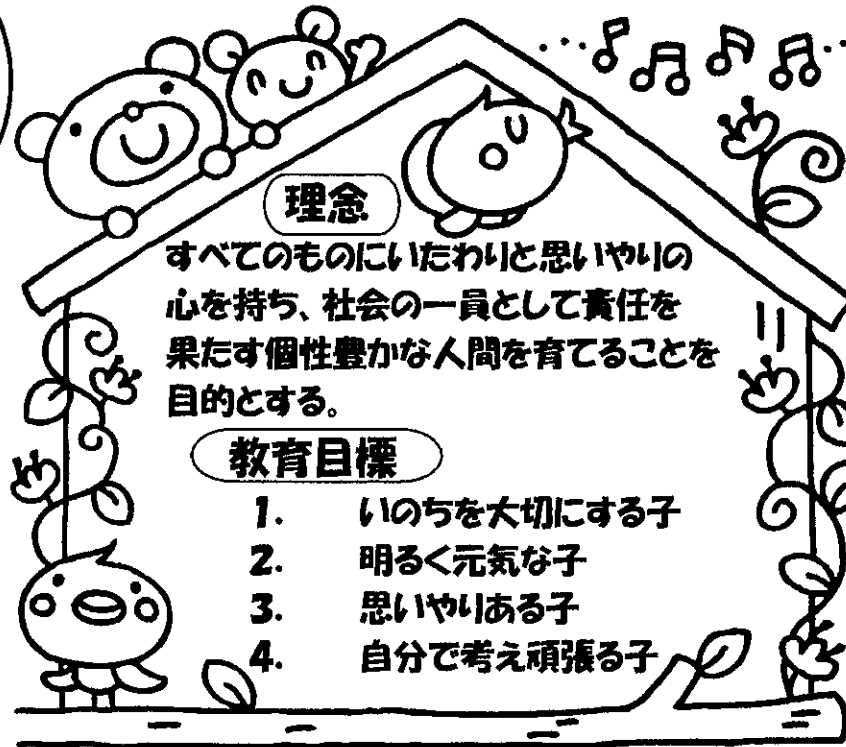 理念
すべてのものにいたわりと思いやりの
心を持ち、社会の一員として責任を
果たす個性豊かな人間を育てることを
目的とする。
教育目標
1. いのちを大切にする子
2. 明るく元気な子
3. 思いやりある子
4. 自分で考え頑張る子